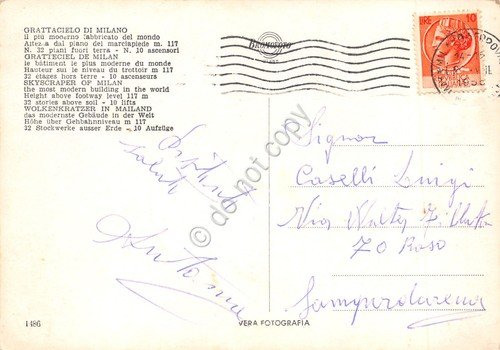 GRATTACIELO DI MILANO
il più moderno fabbricato del mondo
Altezza dal piano del marciapiede m. 117
N. 32 piani fuori terra - N. 10 ascensori
GRATTECIEL DE MILAN
le bâtiment le plus moderne du monde
Hauteur sur le niveau du trottoir m 117
32 étages hors terre - 10 ascenseurs
SKYSCRAPER OF MILAN
the most modern building in the world
Height above footway level 117 m
32 stories above soil - 10 lifts
WOLKENKRATZER IN MAILAND
das modernste Gebäude in der Welt
Höhe über Gehbahnniveau m 117
32 Stockwerke ausser Erde - 10 Aufzüge
BROMOFOTO
LIRE 10
Distinti
saluti
Signor
Caselli Luigi
Via Walter
70 Rosso
Sampierdarena
do not copy
1486
VERA FOTOGRAFIA